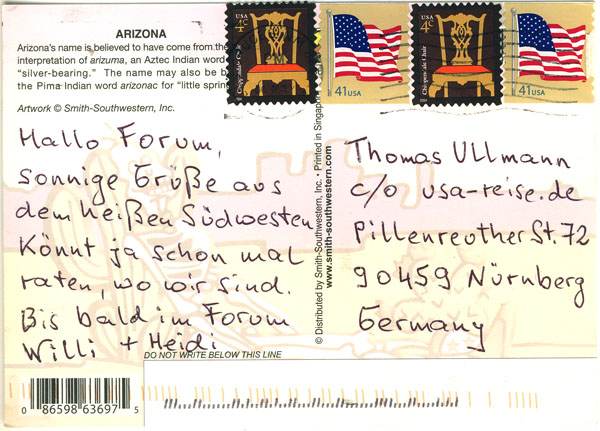 ARIZONA
Arizona's name is believed to have come from the
interpretation of arizuma, an Aztec Indian word
"silver-bearing." The name may also be b
the Pima Indian word arizonac for "little sprin
Artwork © Smith-Southwestern, Inc.
USA 4c
Chippendale Chair
41 USA
USA 4c
Chippendale Chair
41 USA
Hallo Forum,
sonnige Grüße aus
dem heißen Südwesten
Könnt ja schon mal
raten, wo wir sind.
Bis bald im Forum
Willi + Heidi
© Distributed by Smith-Southwestern, Inc. • Printed in Singapore
www.smith-southwestern.com
Thomas Ullmann
c/o usa-reise.de
Pillenreuther St. 72
90459 Nürnberg
Germany
DO NOT WRITE BELOW THIS LINE
0 86598 63697 5